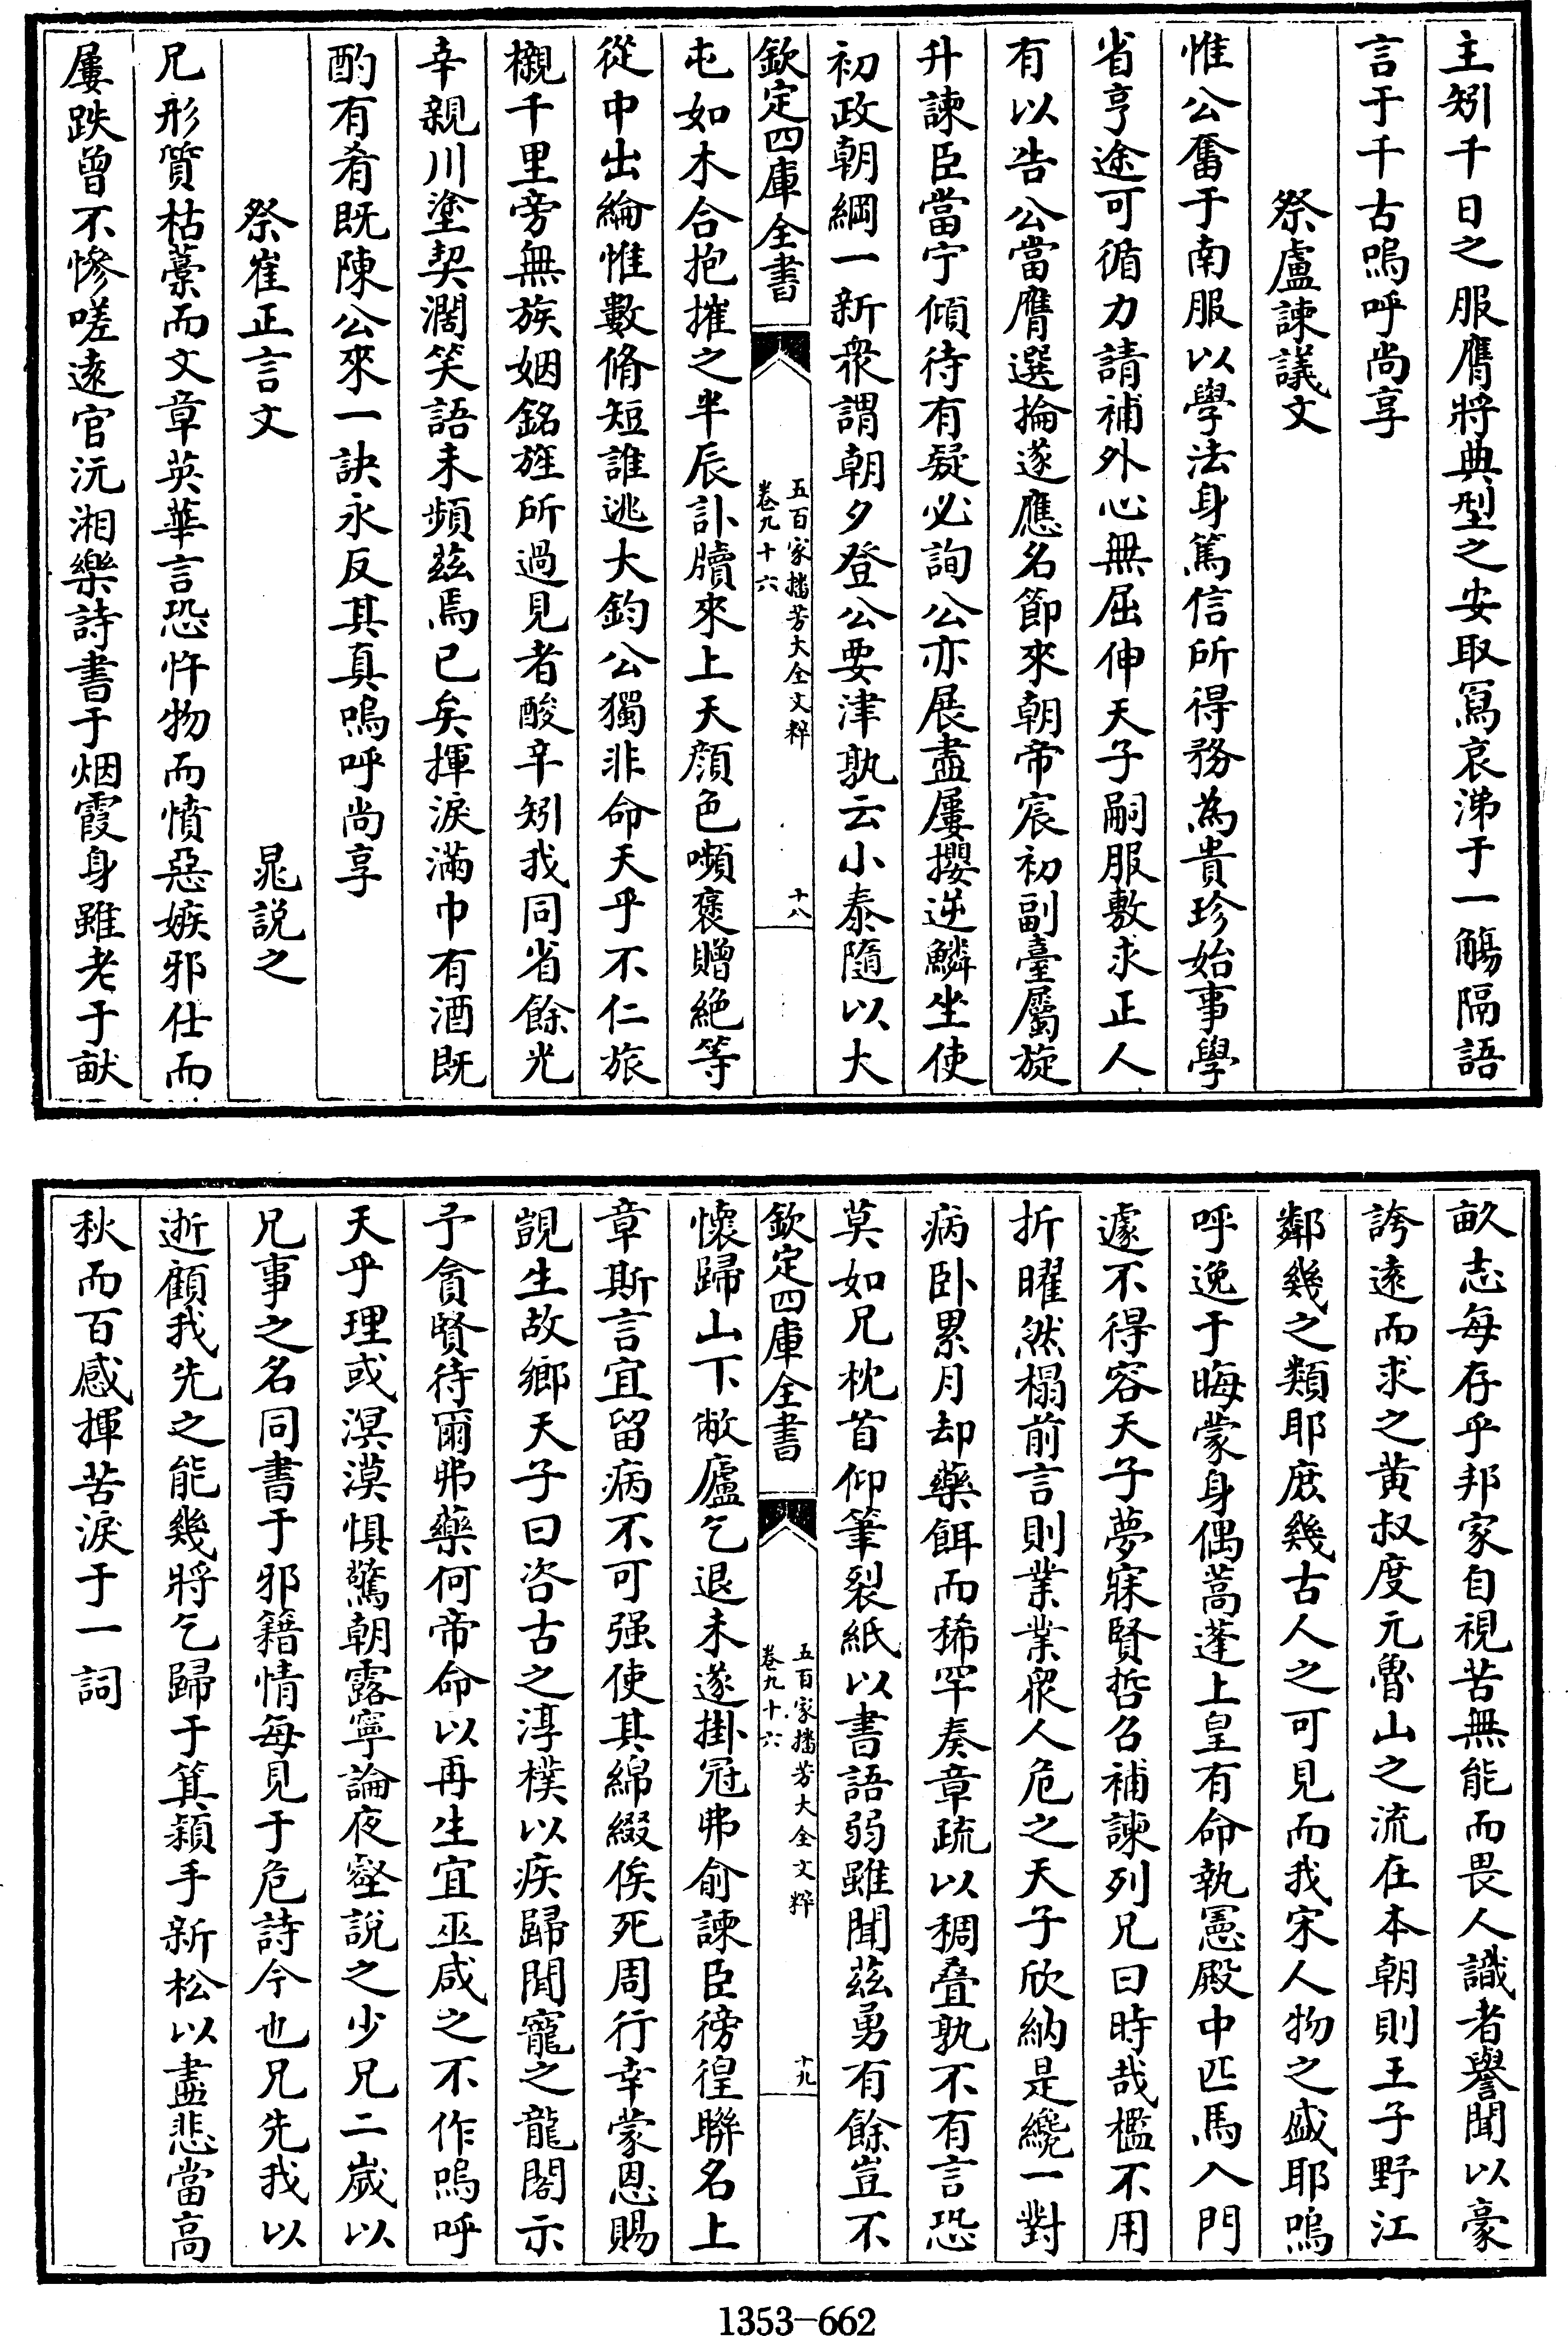 主矧千日之服膺將典型之安取寫哀涕于一觴隔語
言于千古嗚呼尚享
祭盧諫議文
惟公奮于南服以學法身篤信所得務為貴珍始事學
省亨途可循力請補外心無屈伸天子嗣服敷求正人
有以告公當膺選掄遂應名節來朝帝宸初副臺屬旋
升諫臣當宁傾待有疑必詢公亦展盡屢攖逆鱗坐使
初政朝綱一新衆謂朝夕登公要津孰云小泰隨以大
欽定四庫全書
五百家播芳大全文粹
卷九十六
十八
屯如木合抱摧之半辰訃牘來上天顔色嚬褒贈絶等
從中出綸惟數脩短誰逃大鈞公獨非命天乎不仁旅
櫬千里旁無族姻銘旌所過見者酸辛矧我同省餘光
幸親川塗契濶笑語未頻茲焉已矣揮淚滿巾有酒既
酌有肴既陳公來一訣永反其真嗚呼尚享
祭崔正言文
晁説之
兄形質枯藁而文章英華言恐忤物而憤惡嫉邪仕而
屢跌曾不慘嗟遠官沅湘樂詩書于烟霞身雖老于畎
畝志每存乎邦家自視苦無能而畏人識者譽聞以豪
誇遠而求之黄叔度元魯山之流在本朝則王子野江
鄰幾之類耶庶幾古人之可見而我宋人物之盛耶嗚
呼逸于晦蒙身偶蒿蓬上皇有命執憲殿中匹馬入門
遽不得容天子夢寐賢哲召補諫列兄曰時哉檻不用
折曜然榻前言則業業衆人危之天子欣納是纔一對
病卧累月却藥餌而稀罕奏章疏以稠疊孰不有言恐
莫如兄枕首仰筆裂紙以書語弱雖聞茲勇有餘豈不
欽定四庫全書
五百家播芳大全文粹
卷九十六
十九
懷歸山下敝廬乞退未遂掛冠弗俞諫臣徬徨聯名上
章斯言宜留病不可强使其綿綴俟死周行幸蒙恩賜
覬生故鄉天子曰咨古之淳樸以疾歸閒寵之龍閣示
予貪賢待爾弗藥何帝命以再生宜巫咸之不作嗚呼
天乎理或溟漠惧驚朝露寧論夜壑說之少兄二嵗以
兄事之名同書于邪籍情每見于危詩今也兄先我以
逝顧我先之能幾將乞歸于箕潁手新松以盡悲當高
秋而百感揮苦淚于一詞
1353-662